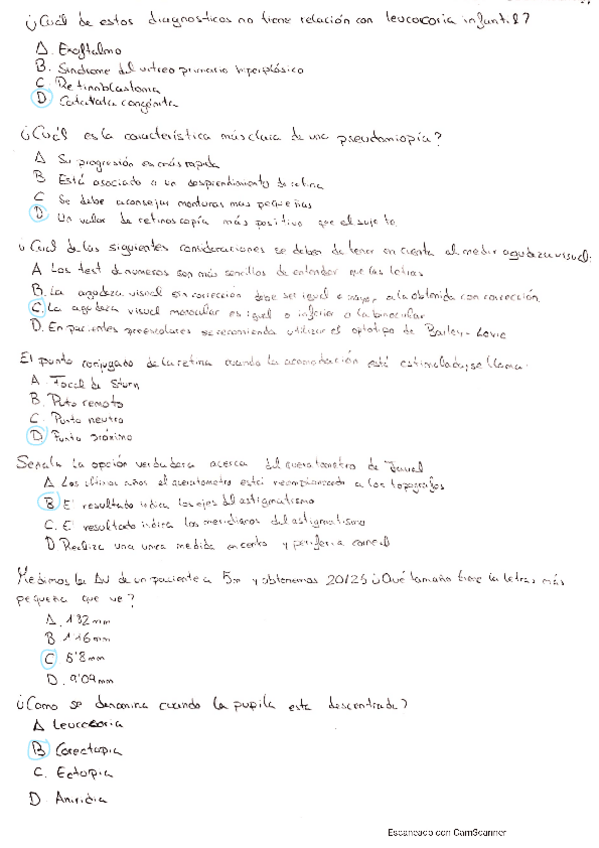 ¿Cuál de estos diagnosticos no tiene relación con leucocoria infantil?
A. Exoftalmo
B. Sindrome del vitreo primario hiperplásico
C. Retinoblastoma
D. Catarata congénita
¿Cuál es la característica más clara de una pseudomiopía?
A Su progresión es más rapida
B Está asociado a un desprendimiento de retina
C Se debe aconsejar monturas mas pequeñas
D. Un valor de retinoscopía más positivo que el sujeto
¿Cual de las siguientes consideraciones se deben de tener en cuenta al medir agudeza visual:
A Los test de numeros son más sencillos de entender que las letras
B. La agudeza visual sin corrección debe ser igual o mayor a la obtenida con corrección
C. La agudeza visual monocular es igual o inferior a la binocular
D. En pacientes preescolares se recomienda utilizar el optotipo de Bailey-Lovie
El punto conjugado de la retina cuando la acomodación está estimulada, se llama:
A. Focal de Sturm
B. Puto remoto
C. Punto neutro
D. Punto próximo
Señala la opción verdadera acerca del queratometro de Javal
A Los últimos años el queratometro está reemplazando a los topografos
B. El resultado indica los ejes del astigmatismo
C. El resultado indica los meridianos del astigmatismo
D Realiza una unica medida en centro y periferia corneal
Medimos la AV de un paciente a 5m y obtenemos 20/25 ¿Qué tamaño tiene la letra más
pequeña que ve?
A. 1'82mm
B 1'16mm
C 5'8mm
D. 9'09mm
¿Como se denomina cuando la pupila esta descentrada?
A Leucocoria
B. Corectopia
C. Ectopia
D Aniridia
Escaneado con CamScanner